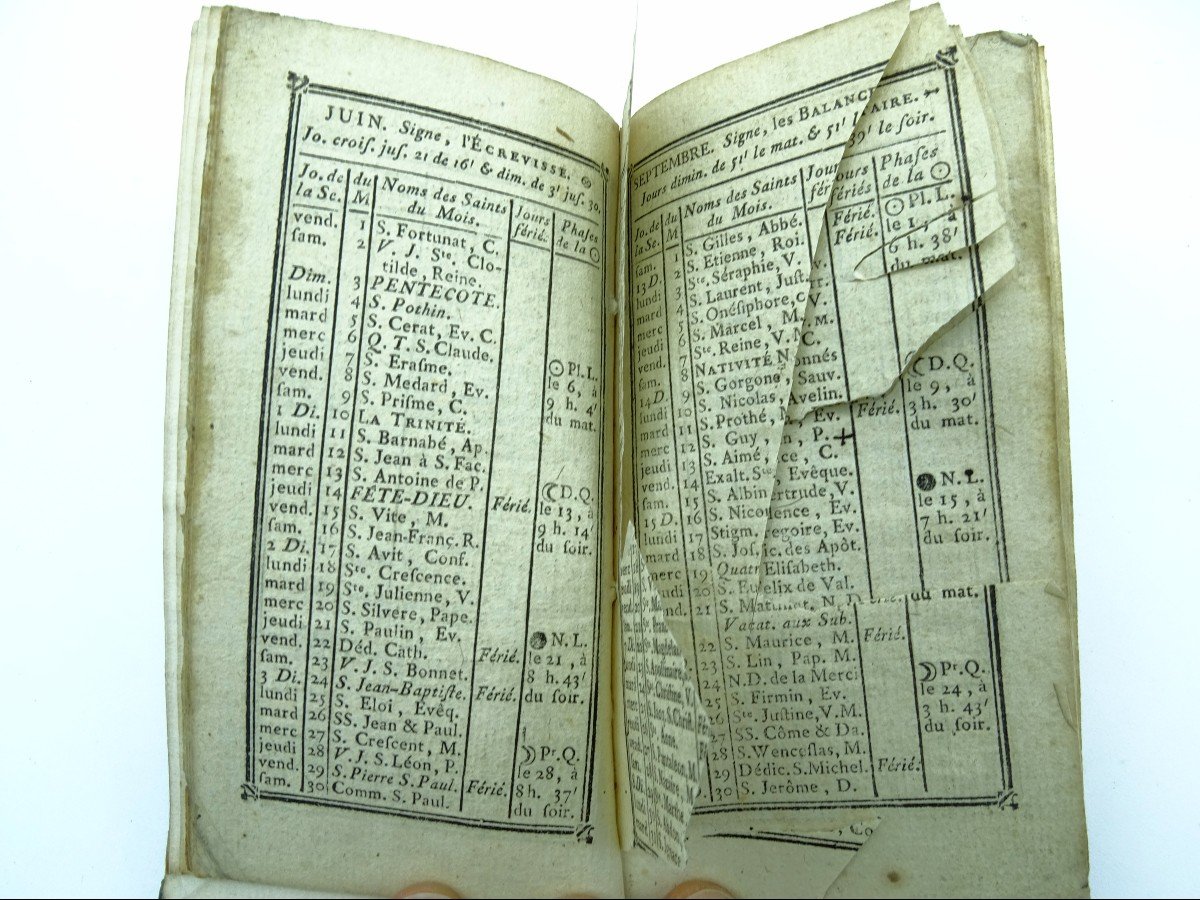 JUIN. Signe, l'ÉCREVISSE.
Jo. crois. jus. 21 de 16' & dim. de 3' jus. 30.
Jo. de la Se. du M Noms des Saints du Mois. Jours férié. Phases de la
vend. 1 S. Fortunat, C.
sam. 2 V. J. Ste. Clo-
tilde, Reine.
Dim. 3 PENTECOTE.
lundi 4 S. Pothin.
mard 5 S. Cerat, Ev. C.
merc 6 Q. T. S. Claude.
jeudi 7 S. Erasme. Pl. L.
vend. 8 S. Medard, Ev. le 6, à
sam. 9 S. Prisme, C. 9 h. 4'
1 Di. 10 LA TRINITÉ. du mat.
lundi 11 S. Barnabé, Ap.
mard 12 S. Jean à S. Fac.
merc 13 S. Antoine de P. D.Q.
jeudi 14 FÊTE-DIEU. Férié. le 13, à
vend. 15 S. Vite, M. 9 h. 14'
sam. 16 S. Jean-Franç. R. du soir.
2 Di. 17 S. Avit, Conf.
lundi 18 Ste. Crescence.
mard 19 Ste. Julienne, V.
merc 20 S. Silvére, Pape.
jeudi 21 S. Paulin, Ev. N. L.
vend. 22 Déd. Cath. Férié. le 21, à
sam. 23 V. J. S. Bonnet. 8 h. 43'
3 Di. 24 S. Jean-Baptiste. Férié. du soir.
lundi 25 S. Eloi, Evêq.
mard 26 SS. Jean & Paul.
merc 27 S. Crescent, M. Pr. Q.
jeudi 28 V. J. S. Léon, P. le 28, à
vend. 29 S. Pierre S. Paul. Férié. 8h. 37'
sam. 30 Comm. S. Paul. du soir.
SEPTEMBRE. Signe, les BALANC AIRE.
Jours dimin. de 51' le mat. & 51' 39' le soir.
Jo. de la Se. du M Noms des Saints du Mois. Jour fér ours fériés Phases de la
sam. 1 S. Gilles, Abbé. Férié. Pl. L.
13 D. 2 S. Etienne, Roi. Férié. le 1, à
lundi 3 Ste. Séraphie, V. 6 h. 38'
mard 4 S. Laurent, Just. du mat.
merc 5 S. Onésiphore,
jeudi 6 S. Marcel, M.
vend. 7 Ste. Reine, V.
sam. 8 NATIVITÉ N onnés D.Q.
14 D. 9 S. Gorgone, Sauv. le 9, à
lundi 10 S. Nicolas, Avelin. 3 h. 30'
mard 11 S. Prothé, M. Ev. Férié. du mat.
merc 12 S. Guy, P.
jeudi 13 S. Aimé, ce, C.
vend. 14 Exalt. Ste Evêque. N. L.
sam. 15 S. Albin ertrude, V. le 15, à
15 D. 16 S. Nico ence, Ev. 7 h. 21'
lundi 17 Stigm. egoire, Ev. du soir.
mard 18 S. Jos c. des Apôt.
merc 19 Quat Elisabeth.
jeudi 20 S. Eu elix de Val. du mat.
vend. 21 S. Mat
Vacat. aux Sub.
22 S. Maurice, M. Férié.
23 S. Lin, Pap. M. Pr. Q.
24 N.D. de la Merci le 24, à
25 S. Firmin, Ev. 3 h. 43'
26 Ste. Justine, V.M. du soir.
27 SS. Côme & Da.
28 S. Wenceslas, M.
29 Dédic. S. Michel. Férié.
30 S. Jerôme, D.